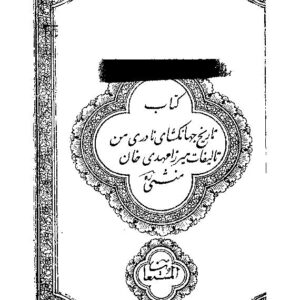 کتاب
تاریخ جهانگشای نادری من
تالیفات میرزا مهدی خان
منشی